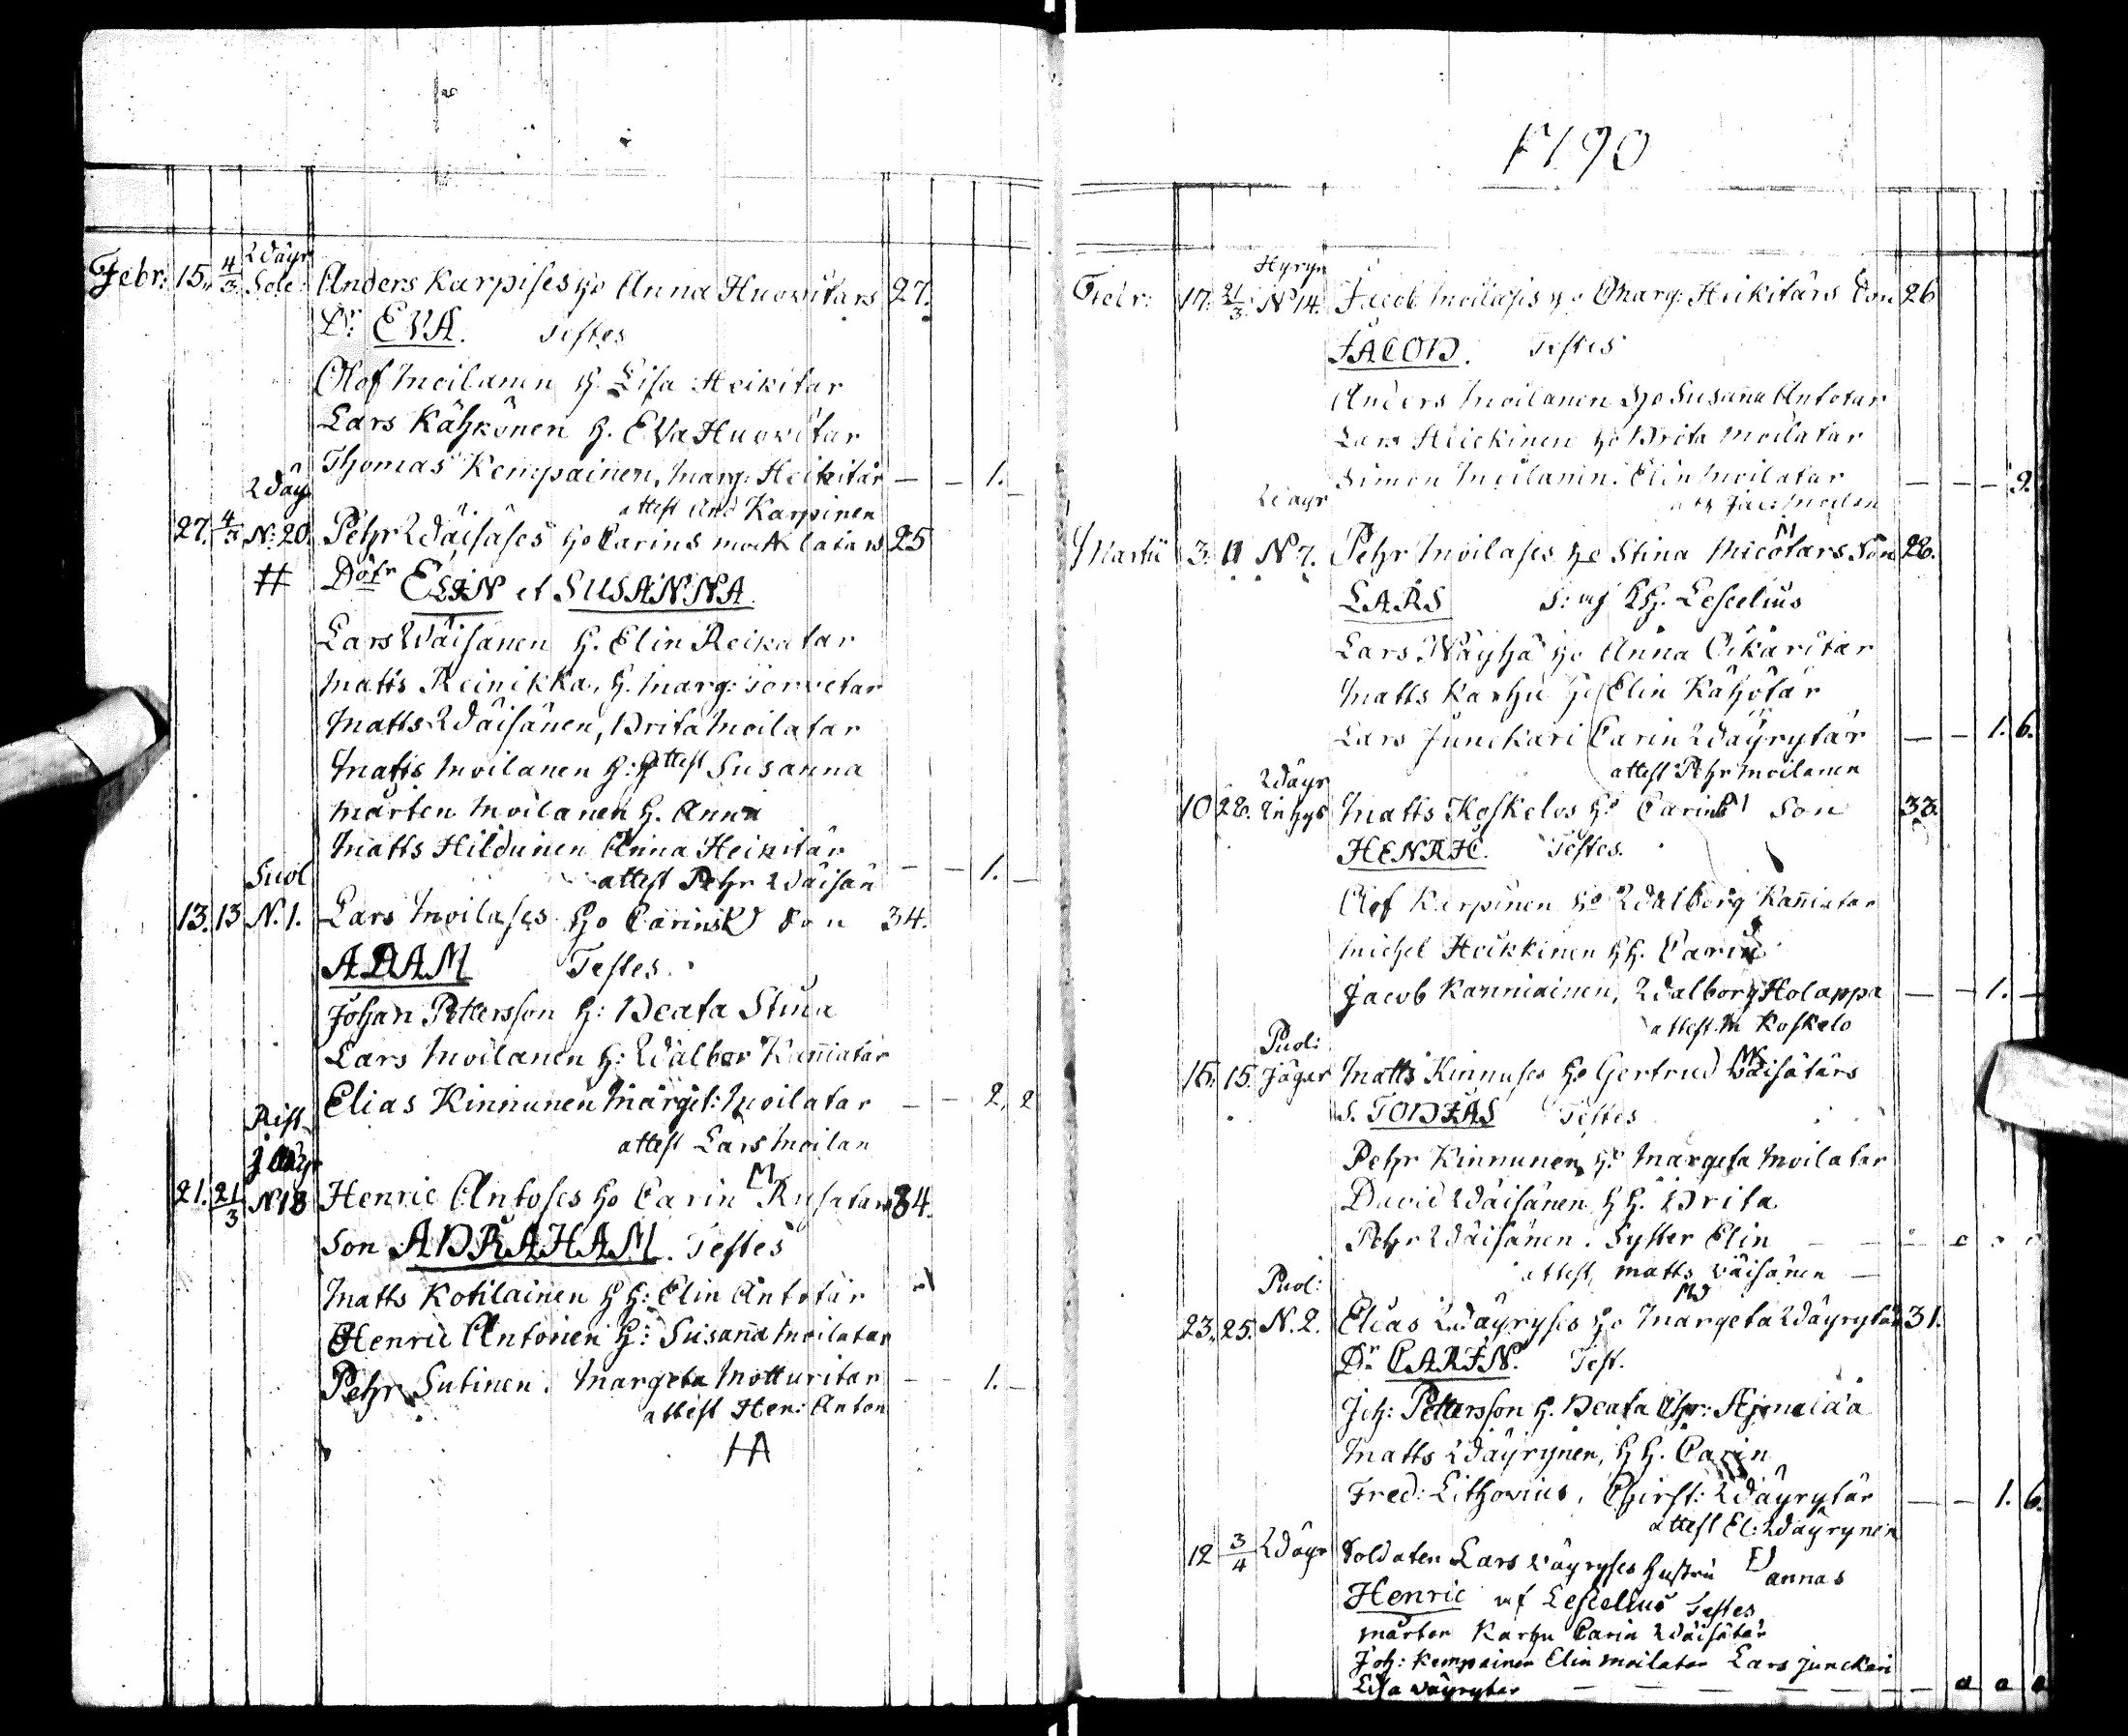 Febr: 15. 4/3 Wäyr Sole: Anders Karpises ho Anna Huovitars 27.
Dr. EVA. Testes
Olof Moilanen h. Lisa Heikitar
Lars Kähkönen h. Eva Huovitar
Thomas Kempainen, Marg: Heikitär — — 1. —
attest And Karpinen
27. 4/3 Wäy N: 20. Pehr Wäisäses ho Carins Moilatars 25
# Dötr ELIN et SUSANNA.
Lars Wäisänen h. Elin Reikatar
Matts Reinikka, h. Marg: Torvetar
Matts Wäisänen, Brita Moilatar
Matts Moilanen h: Susanna
Mårten Moilanen h. Anna
Matts Hildunen Anna Heikitär — — 1. —
attest Pehr Wäisän
13. 13 Suol N. 1. Lars Moilases ho Carins Son 34.
ADAM Testes.
Johan Pettersson h: Beata Stina
Lars Moilanen h: Walbor Kanniatar
Elias Kinnunen Marget: Moilatar — — 2. 2
attest Lars Moilan
Rist
21. 21/3 N 18 Henric Antoses ho Carin Rusatars 34.
Son ABRAHAM. Testes
Matts Kotilainen h h: Elin Antotar
Henric Antonen h: Susanna Moilatar
Pehr Sutinen. Margeta Motturitar — — 1. —
attest Hen: Anton
HA
1790
Febr: 17. 21/3 Hyryn N 14. Jacob Moilases ho Marg: Heikitärs Son 26
JACOB. Testes
Anders Moilanen ho Susanna Antotar
Lars Heickinen ho Brita Moilatar
Simon Moilanen. Elin Moilatar — — — 9.
att Jac: Moilan
Martii 3. 11 Wäyr N 7. Pehr Moilases ho Stina Micotars Son 28.
LARS
Lars Wäyhä ho Anna Oikaritar
Matts Karhu ho Elin Kähötär
Lars Junckari Carin Wäyrytär — — 1. 6.
attest Pehr Moilanen
10 28. Wäyr Inhys Matts Koskelos ho Carins Son 33.
HENRIC. Testes.
Olof Karpinen ho Walborg Kanniatar
Michel Heikkinen h h. Carin
Jacob Kanniainen, Walborg Holappa — — 1. —
attest. M Koskelo
15. 15. Puol: Jägar Matts Kinnuses ho Gertrud Wäisätärs
S. TOBIAS Testes
Pehr Kinnunen, ho Margeta Moilatar
David Wäisänen h h. Brita
Pehr Wäisänen. Syster Elin
attest, Matts Wäisänen —
23. 25. Puol: N. 2. Elias Wäyryses ho Margeta Wäyrytärs 31.
Dr. CARIN. Test.
Joh: Pettersson h. Beata
Matts Wäyrynen, h h. Carin
Fred: Lithovius, Christ: Wäyrytär — — 1. 6.
attest El: Wäyrynen
12 3/4 Wäyr Soldaten Lars Wäyryses hustru Annas
Henric af Lescelius Testes
Mårten Karhu Carin Wäisätär
Joh: Kempainen Elin Moilatar Lars Junckari
Lisa Wäyrytär — — — — — 0 0 0